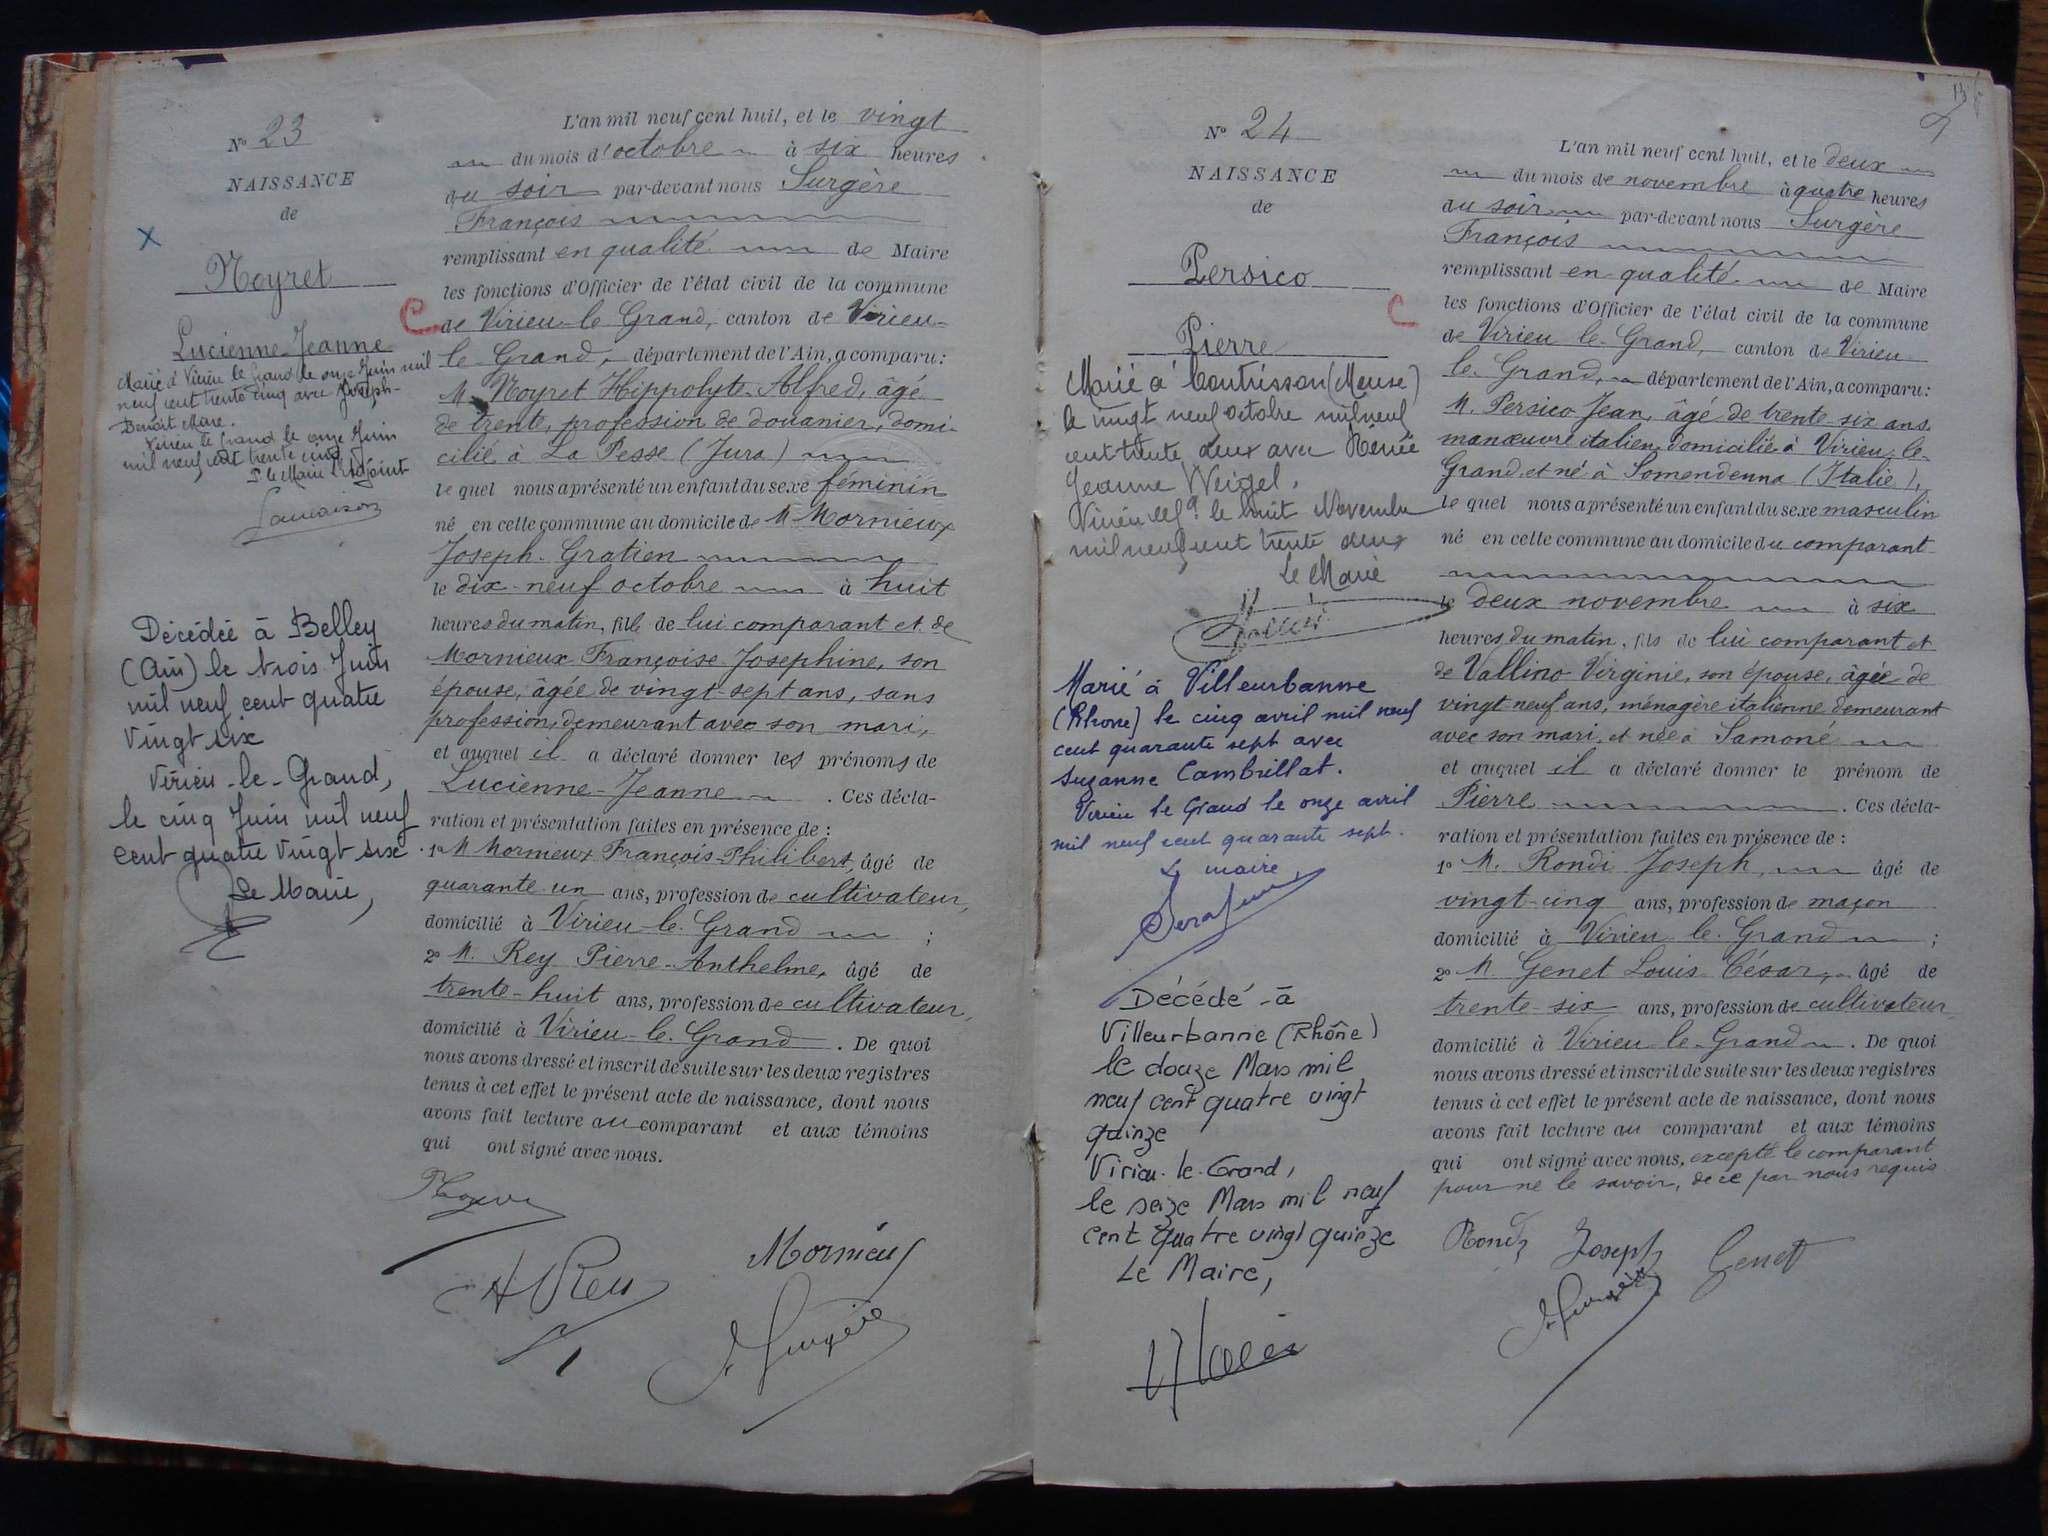 No 23
NAISSANCE
de
Noyret
Lucienne-Jeanne
Marié à Virieu le Grand le onze Juin mil
neuf cent trente cinq avec Joseph-
Benoît Mare.
Virieu le Grand le onze Juin
mil neuf cent trente cinq
P. le Maire l'Adjoint
Décédée à Belley
(Ain) le trois Juin
mil neuf cent quatre
vingt six
Virieu-le-Grand,
le cinq Juin mil neuf
cent quatre vingt six
Le Maire,
L'an mil neuf cent huit, et le vingt
du mois d'octobre à six heures
du soir par-devant nous Surgère
François
remplissant en qualité de Maire
les fonctions d'Officier de l'état civil de la commune
C de Virieu-le Grand, canton de Virieu-
le Grand, département de l'Ain, a comparu:
M. Noyret Hippolyte-Alfred, âgé
de trente, profession de douanier, domi-
cilié à La Pesse (Jura)
le quel nous a présenté un enfant du sexe féminin
né en cette commune au domicile de M. Mornieux
Joseph-Gratien
le dix-neuf octobre à huit
heures du matin, fille de lui comparant et de
Mornieux Françoise Josephine, son
épouse, âgée de vingt-sept ans, sans
profession, demeurant avec son mari,
et auquel il a déclaré donner les prénoms de
Lucienne-Jeanne . Ces décla-
ration et présentation faites en présence de :
1o M Mornieux François-Philibert, âgé de
quarante un ans, profession de cultivateur,
domicilié à Virieu-le-Grand ;
2o M. Rey Pierre-Anthelme, âgé de
trente-huit ans, profession de cultivateur,
domicilié à Virieu-le-Grand . De quoi
nous avons dressé et inscrit de suite sur les deux registres
tenus à cet effet le présent acte de naissance, dont nous
avons fait lecture au comparant et aux témoins
qui ont signé avec nous.
Mornieux
A Rey
F. Surgère
No 24
NAISSANCE
de
Persico
Pierre
Marié à Contrisson (Meuse)
le vingt neuf octobre mil neuf
cent trente deux avec Renée
Jeanne Weigel.
Virieu le gd le huit Novembre
mil neuf cent trente deux
Le Maire
Marié à Villeurbanne
(Rhone) le cinq avril mil neuf
cent quarante sept avec
Suzanne Cambrillat.
Virieu le Grand le onze avril
mil neuf cent quarante sept.
Le maire,
Décédé à
Villeurbanne (Rhône)
le douze Mars mil
neuf cent quatre vingt
quinze
Virieu-le-Grand,
le seize Mars mil neuf
cent quatre vingt quinze
Le Maire,
L'an mil neuf cent huit, et le deux
du mois de novembre à quatre heures
du soir par-devant nous Surgère
François
remplissant en qualité de Maire
C les fonctions d'Officier de l'état civil de la commune
de Virieu le-Grand, canton de Virieu
le-Grand, département de l'Ain, a comparu:
M. Persico Jean, âgé de trente six ans,
manœuvre italien, domicilié à Virieu-le-
Grand, et né à Somendenna (Italie),
le quel nous a présenté un enfant du sexe masculin
né en cette commune au domicile du comparant
le deux novembre à six
heures du matin, fils de lui comparant et
de Vallino Virginie, son épouse, âgée de
vingt-neuf ans, ménagère italienne, demeurant
avec son mari, et née à Samone
et auquel il a déclaré donner le prénom de
Pierre . Ces décla-
ration et présentation faites en présence de :
1o M. Rondi Joseph, âgé de
vingt-cinq ans, profession de maçon
domicilié à Virieu le-Grand ;
2o M Genet Louis-César, âgé de
trente-six ans, profession de cultivateur,
domicilié à Virieu-le-Grand . De quoi
nous avons dressé et inscrit de suite sur les deux registres
tenus à cet effet le présent acte de naissance, dont nous
avons fait lecture au comparant et aux témoins
qui ont signé avec nous, excepté le comparant
pour ne le savoir, de ce par nous requis
Rondi Joseph Genet
F. Surgère